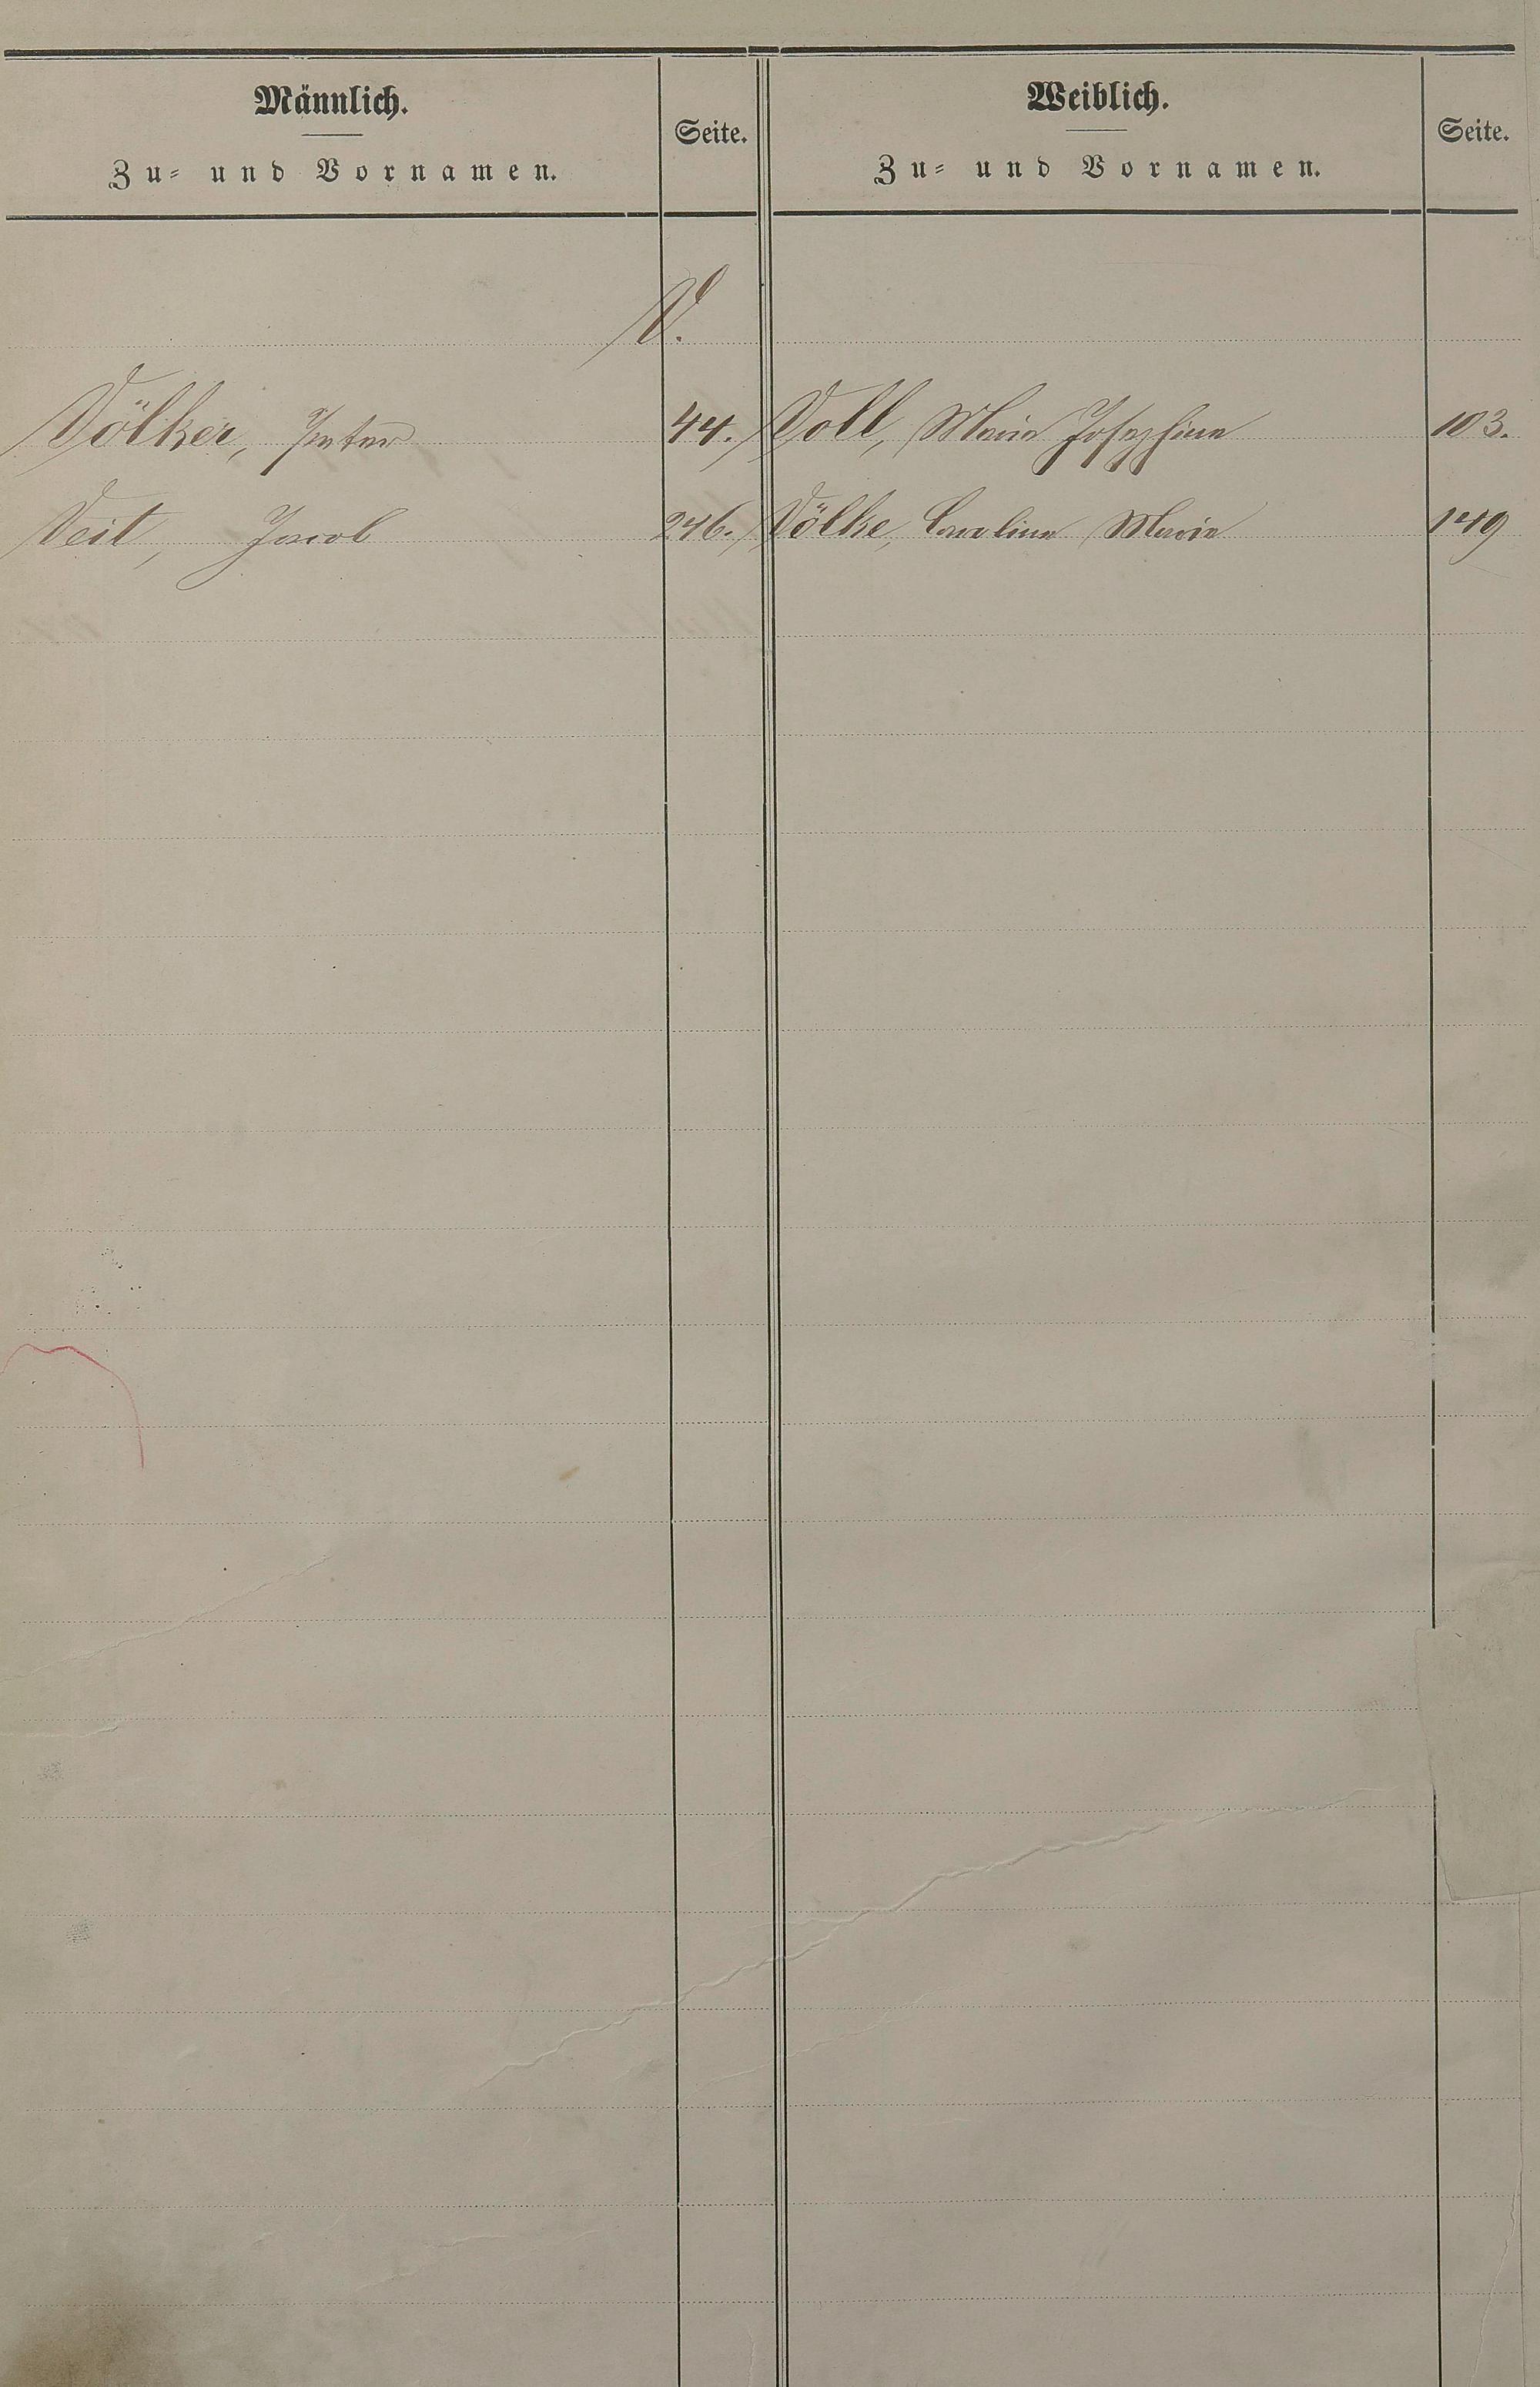 Männlich.
Zu- und Vornamen.
Seite.
Weiblich.
Zu- und Vornamen.
Seite.
V.
Völker, Peter 44. Voll, Maria Josephina 103.
Veit, Jacob 246. Völke, Carolina Maria 149